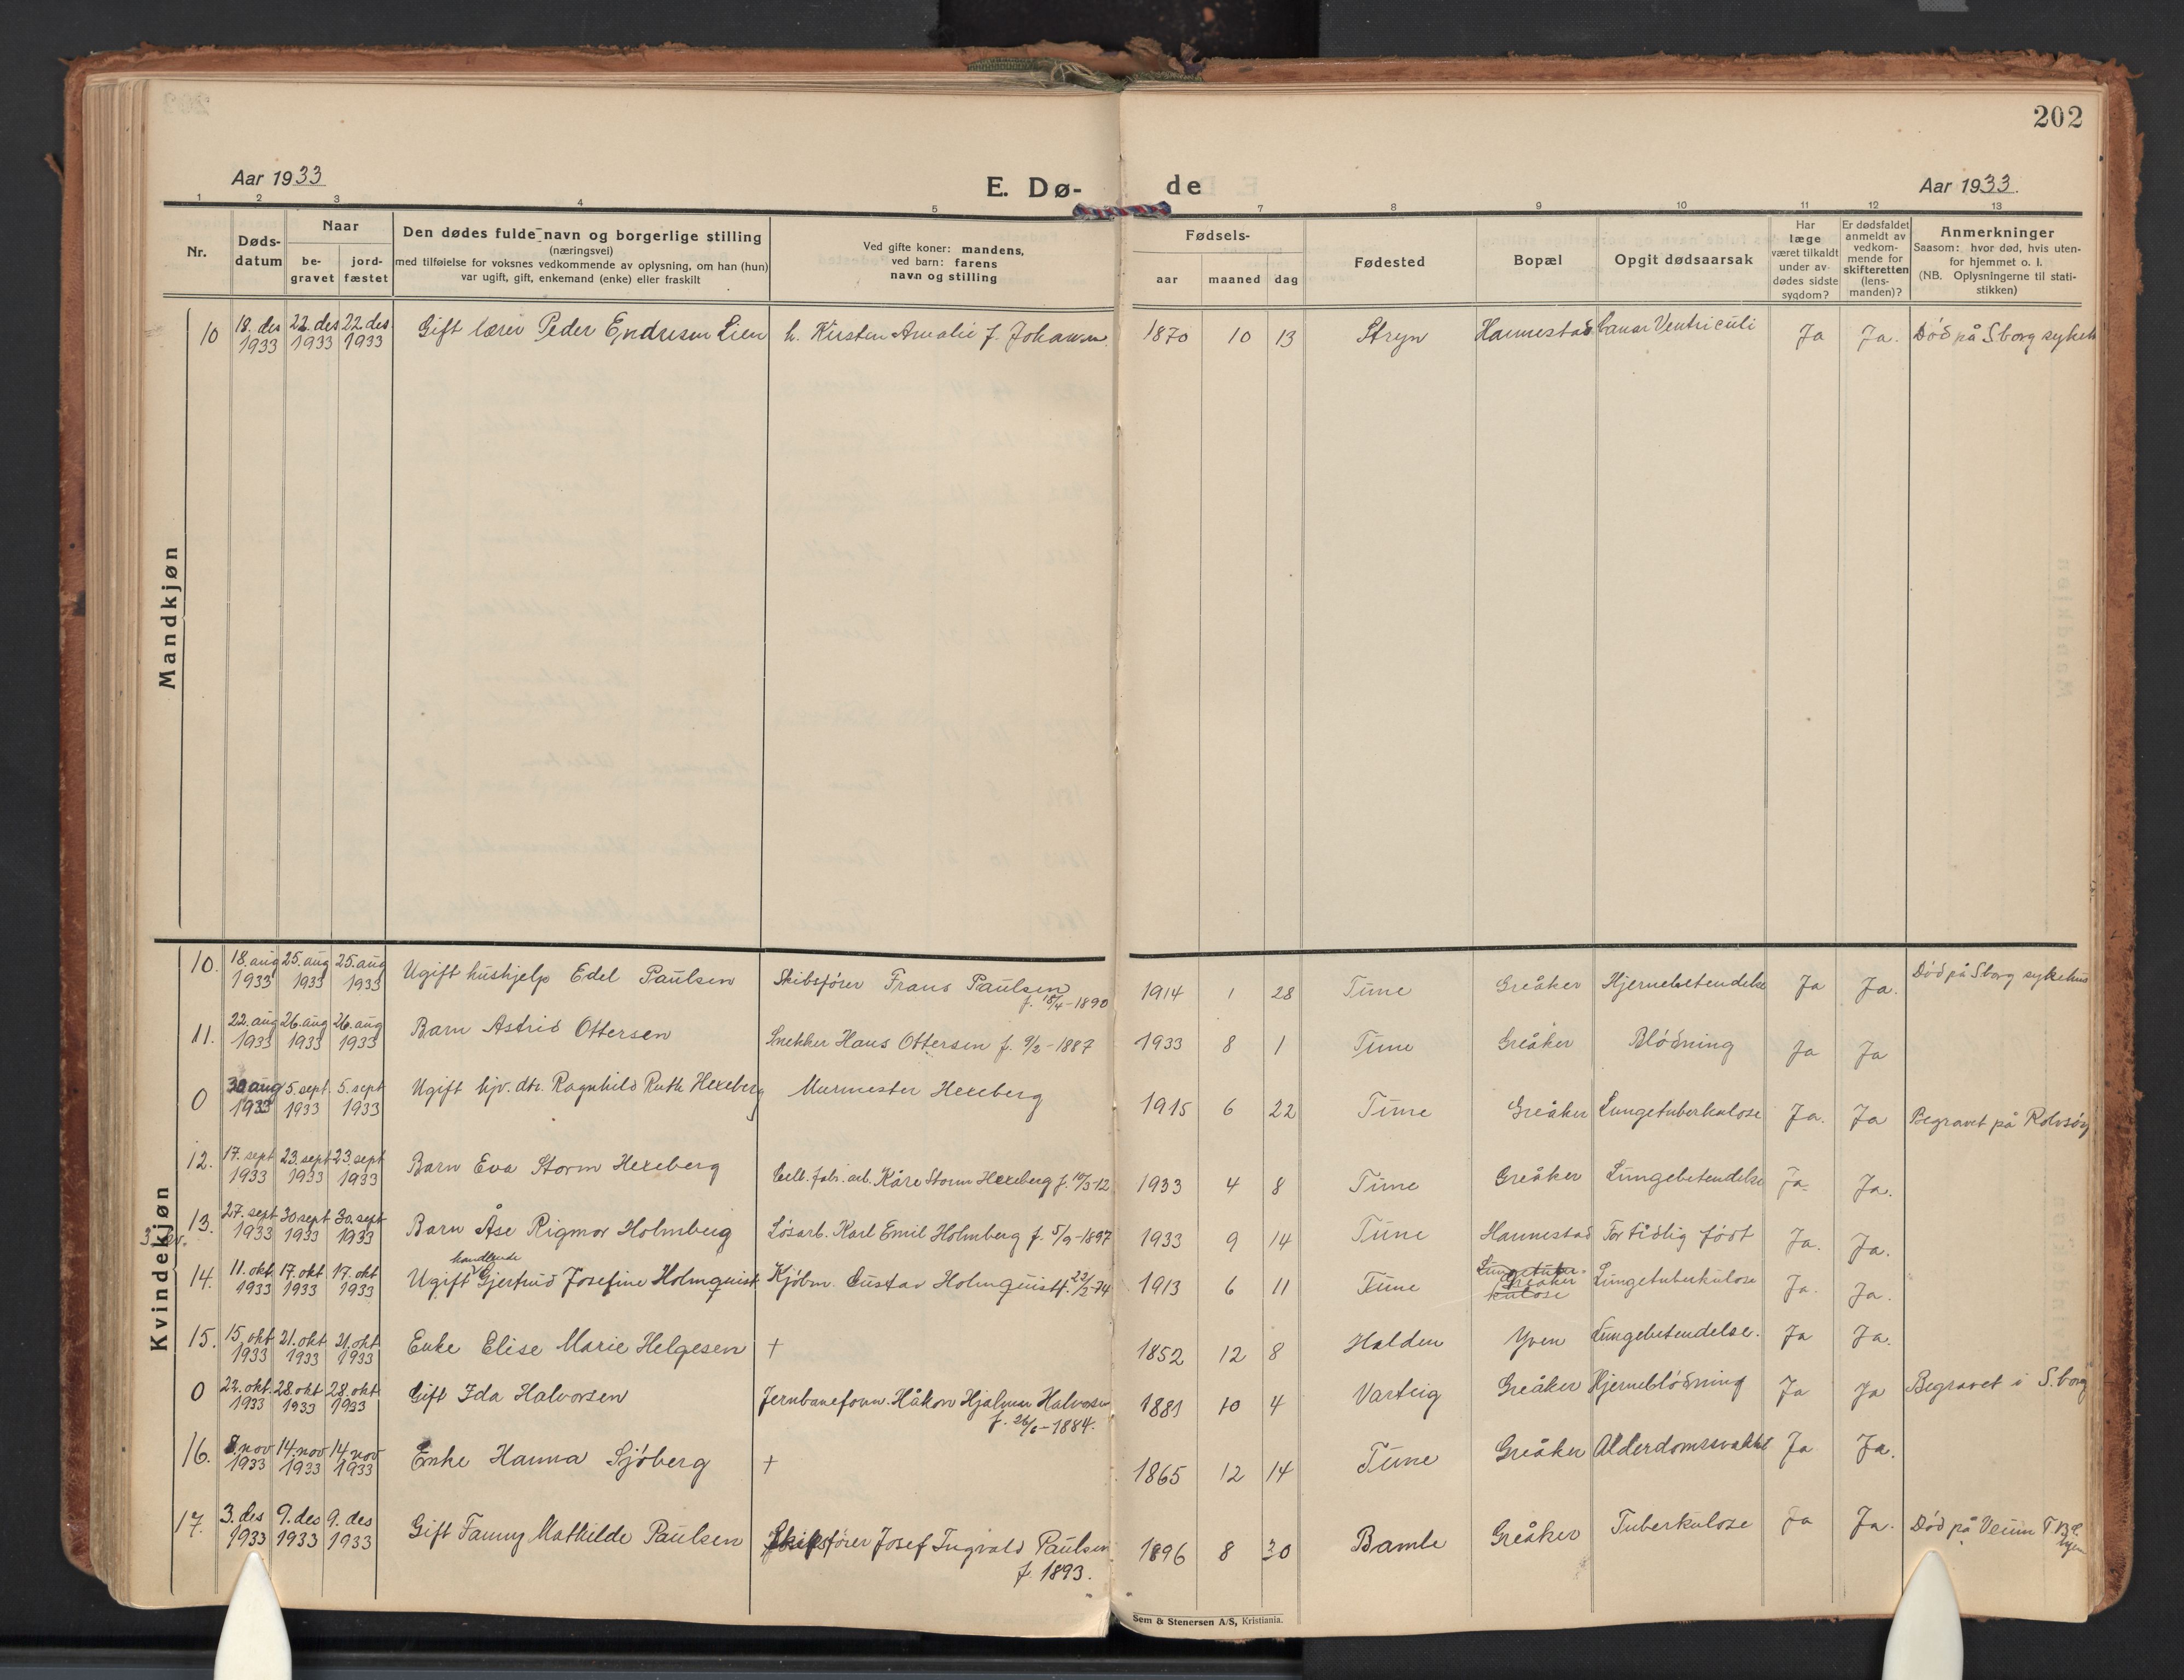 202
Aar 1933
E. Dø-
de
Aar 1933.
1 2 3 4 5 7 8 9 10 11 12 13
Nr.
Døds-
datum
Naar
be-
gravet
jord-
fæstet
Den dødes fulde navn og borgerlige stilling
(næringsvei)
med tilføielse for voksnes vedkommende av oplysning, om han (hun)
var ugift, gift, enkemand (enke) eller fraskilt
Ved gifte koner: mandens,
ved barn: farens
navn og stilling
Fødsels-
aar maaned dag
Fødested
Bopæl
Opgit dødsaarsak
Har
læge
været tilkaldt
under av-
dødes sidste
sygdom?
Er dødsfaldet
anmeldt av
vedkom-
mende for
skifteretten
(lens-
manden)?
Anmerkninger
Saasom: hvor død, hvis uten-
for hjemmet o. l.
(NB. Oplysningerne til stati-
stikken)
Mandkjøn
10 18. des 1933 22. des 1933 22. des 1933 Gift lærer Peder Endresen Lien h. Kirsten Amalie f. Johansen 1870 10 13 Stryn Hannestad Cancer Ventriculi Ja Ja. Død på Sborg sykeh
Kvindekjøn
10. 18. aug 1933 25. aug 1933 25. aug 1933 Ugift hushjelp Edel Paulsen Skibsfører Frans Paulsen f. 18/4-1890 1914 1 28 Tune Greåker Hjernebetendelse Ja Ja. Død på Sborg sykehus
11. 22. aug 1933 26. aug 1933 26. aug 1933 Barn Astrid Ottersen Snekker Hans Ottersen f. 9/2-1887 1933 8 1 Tune Greåker Blødning Ja Ja
0 30 aug 1933 5. sept. 1933 5. sept 1933 Ugift hjv. dtr. Ragnhild Ruth Hexeberg Murmester Hexeberg 1915 6 22 Tune Greåker Lungetuberkulose Ja. Ja Begravet på Rolvsøy
12. 17. sept 1933 23. sept 1933 23. sept 1933 Barn Eva Storm Hexeberg Cell. fabr. arb. Kåre Storm Hexeberg f. 10/3-12 1933 4 8 Tune Greåker Lungebetendelse Ja. Ja.
13. 27. sept 1933 30 sept 1933 30. sept 1933 Barn Åse Rigmor Holmberg Løsarb. Karl Emil Holmberg f. 5/9-1897 1933 9 14 Tune Hannestad For tidlig født Ja. Ja.
handlende
14. 11. okt 1933 17. okt 1933 17. okt 1933 Ugift Gjertrud Josefine Holmquist Kjøbm. Gustav Holmquist f. 22/2-74 1913 6 11 Tune Lungetuber- kulose Greåker Lungetuberkulose Ja. Ja.
15. 15. okt 1933 21. okt 1933 21. okt 1933 Enke Elise Marie Helgesen + 1852 12 8 Halden Yven Lungebetendelse. Ja Ja.
0 22. okt. 1933 28. okt 1933 28. okt 1933 Gift Ida Halvorsen Jernbaneform. Håkon Hjalmar Halvorsen f. 26/6-1884. 1881 10 4 Varteig Greåker Hjerneblødning Ja Ja Begravet i S.borg
16. 8. nov 1933 14. nov 1933 14 nov 1933 Enke Hanna Sjøberg + 1865 12 14 Tune Greåker Alderdomssvakhet Ja Ja.
17. 3. des 1933 9. des 1933 9. des 1933 Gift Fanny Mathilde Paulsen Skipsfører Josef Ingvald Paulsen f. 1893. 1896 8 30 Bamle Greåker Tuberkulose Ja Ja. Død på Veum T.B.C. hjem
Sem & Stenersen A/S, Kristiania.